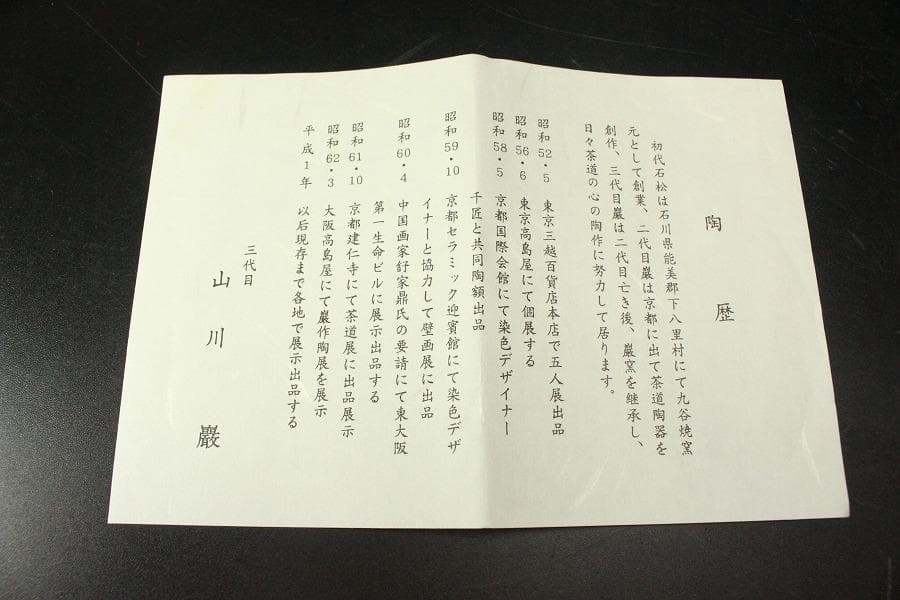 陶歴
初代石松は石川県能美郡下八里村にて九谷焼窯
元として創業、二代目巖は京都に出て茶道陶器を
創作、三代目巖は二代目亡き後、巖窯を継承し、
日々茶道の心の陶作に努力して居ります。
昭和52・5 東京三越百貨店本店で五人展出品
昭和56・6 東京高島屋にて個展する
昭和58・5 京都国際会館にて染色デザイナー
千匠と共同陶額出品
昭和59・10 京都セラミック迎賓館にて染色デザ
イナーと協力して壁画展に出品
昭和60・4 中国画家舒家鼎氏の要請にて東大阪
第一生命ビルに展示出品する
昭和61・10 京都建仁寺にて茶道展に出品展示
昭和62・3 大阪高島屋にて巖作陶展を展示
平成1年 以后現存まで各地で展示出品する
三代目
山川 巖